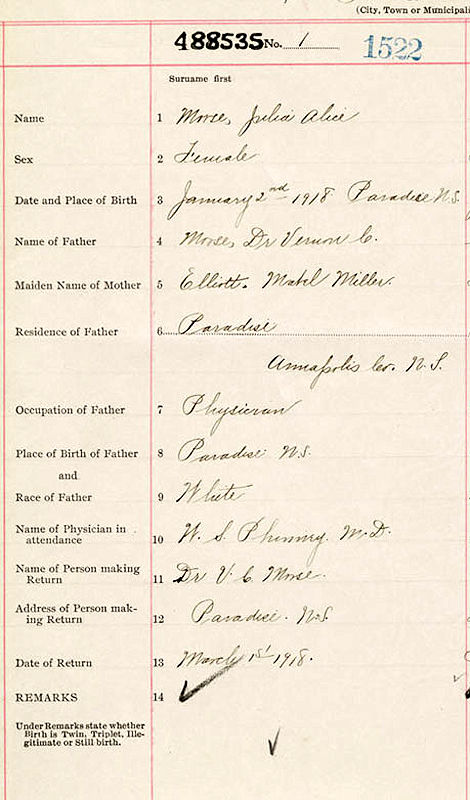 (City, Town or Municipali
488535 No. 1 1522
Surname first
Name 1 Morse, Julia Alice
Sex 2 Female
Date and Place of Birth 3 January 2nd 1918 Paradise N.S.
Name of Father 4 Morse, Dr Vernon C.
Maiden Name of Mother 5 Elliott. Mabel Miller.
Residence of Father 6 Paradise
Annapolis Co. N.S.
Occupation of Father 7 Physician
Place of Birth of Father 8 Paradise N.S.
and
Race of Father 9 White
Name of Physician in
attendance 10 W. S. Phinney. M.D.
Name of Person making
Return 11 Dr V. C. Morse.
Address of Person mak-
ing Return 12 Paradise. N.S.
Date of Return 13 March 1st 1918.
REMARKS 14
Under Remarks state whether
Birth is Twin, Triplet, Ille-
gitimate or Still birth.